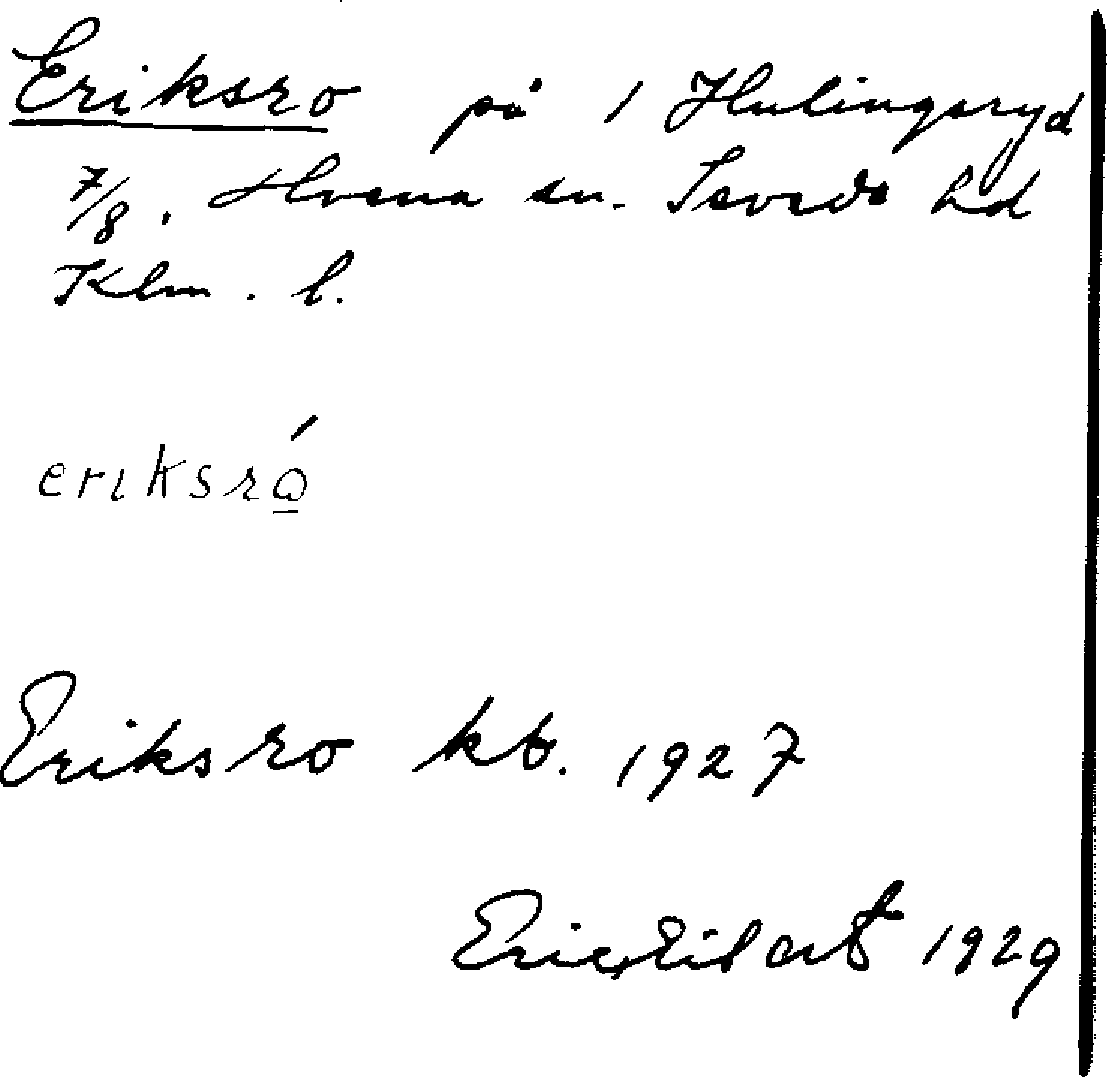 Eriksro på 1 Hulingsryd
7/8. Hvena sn. Sevede hd
Klm. l.
eriksró̲
Eriksro kb. 1927
Eric Eilert 1929